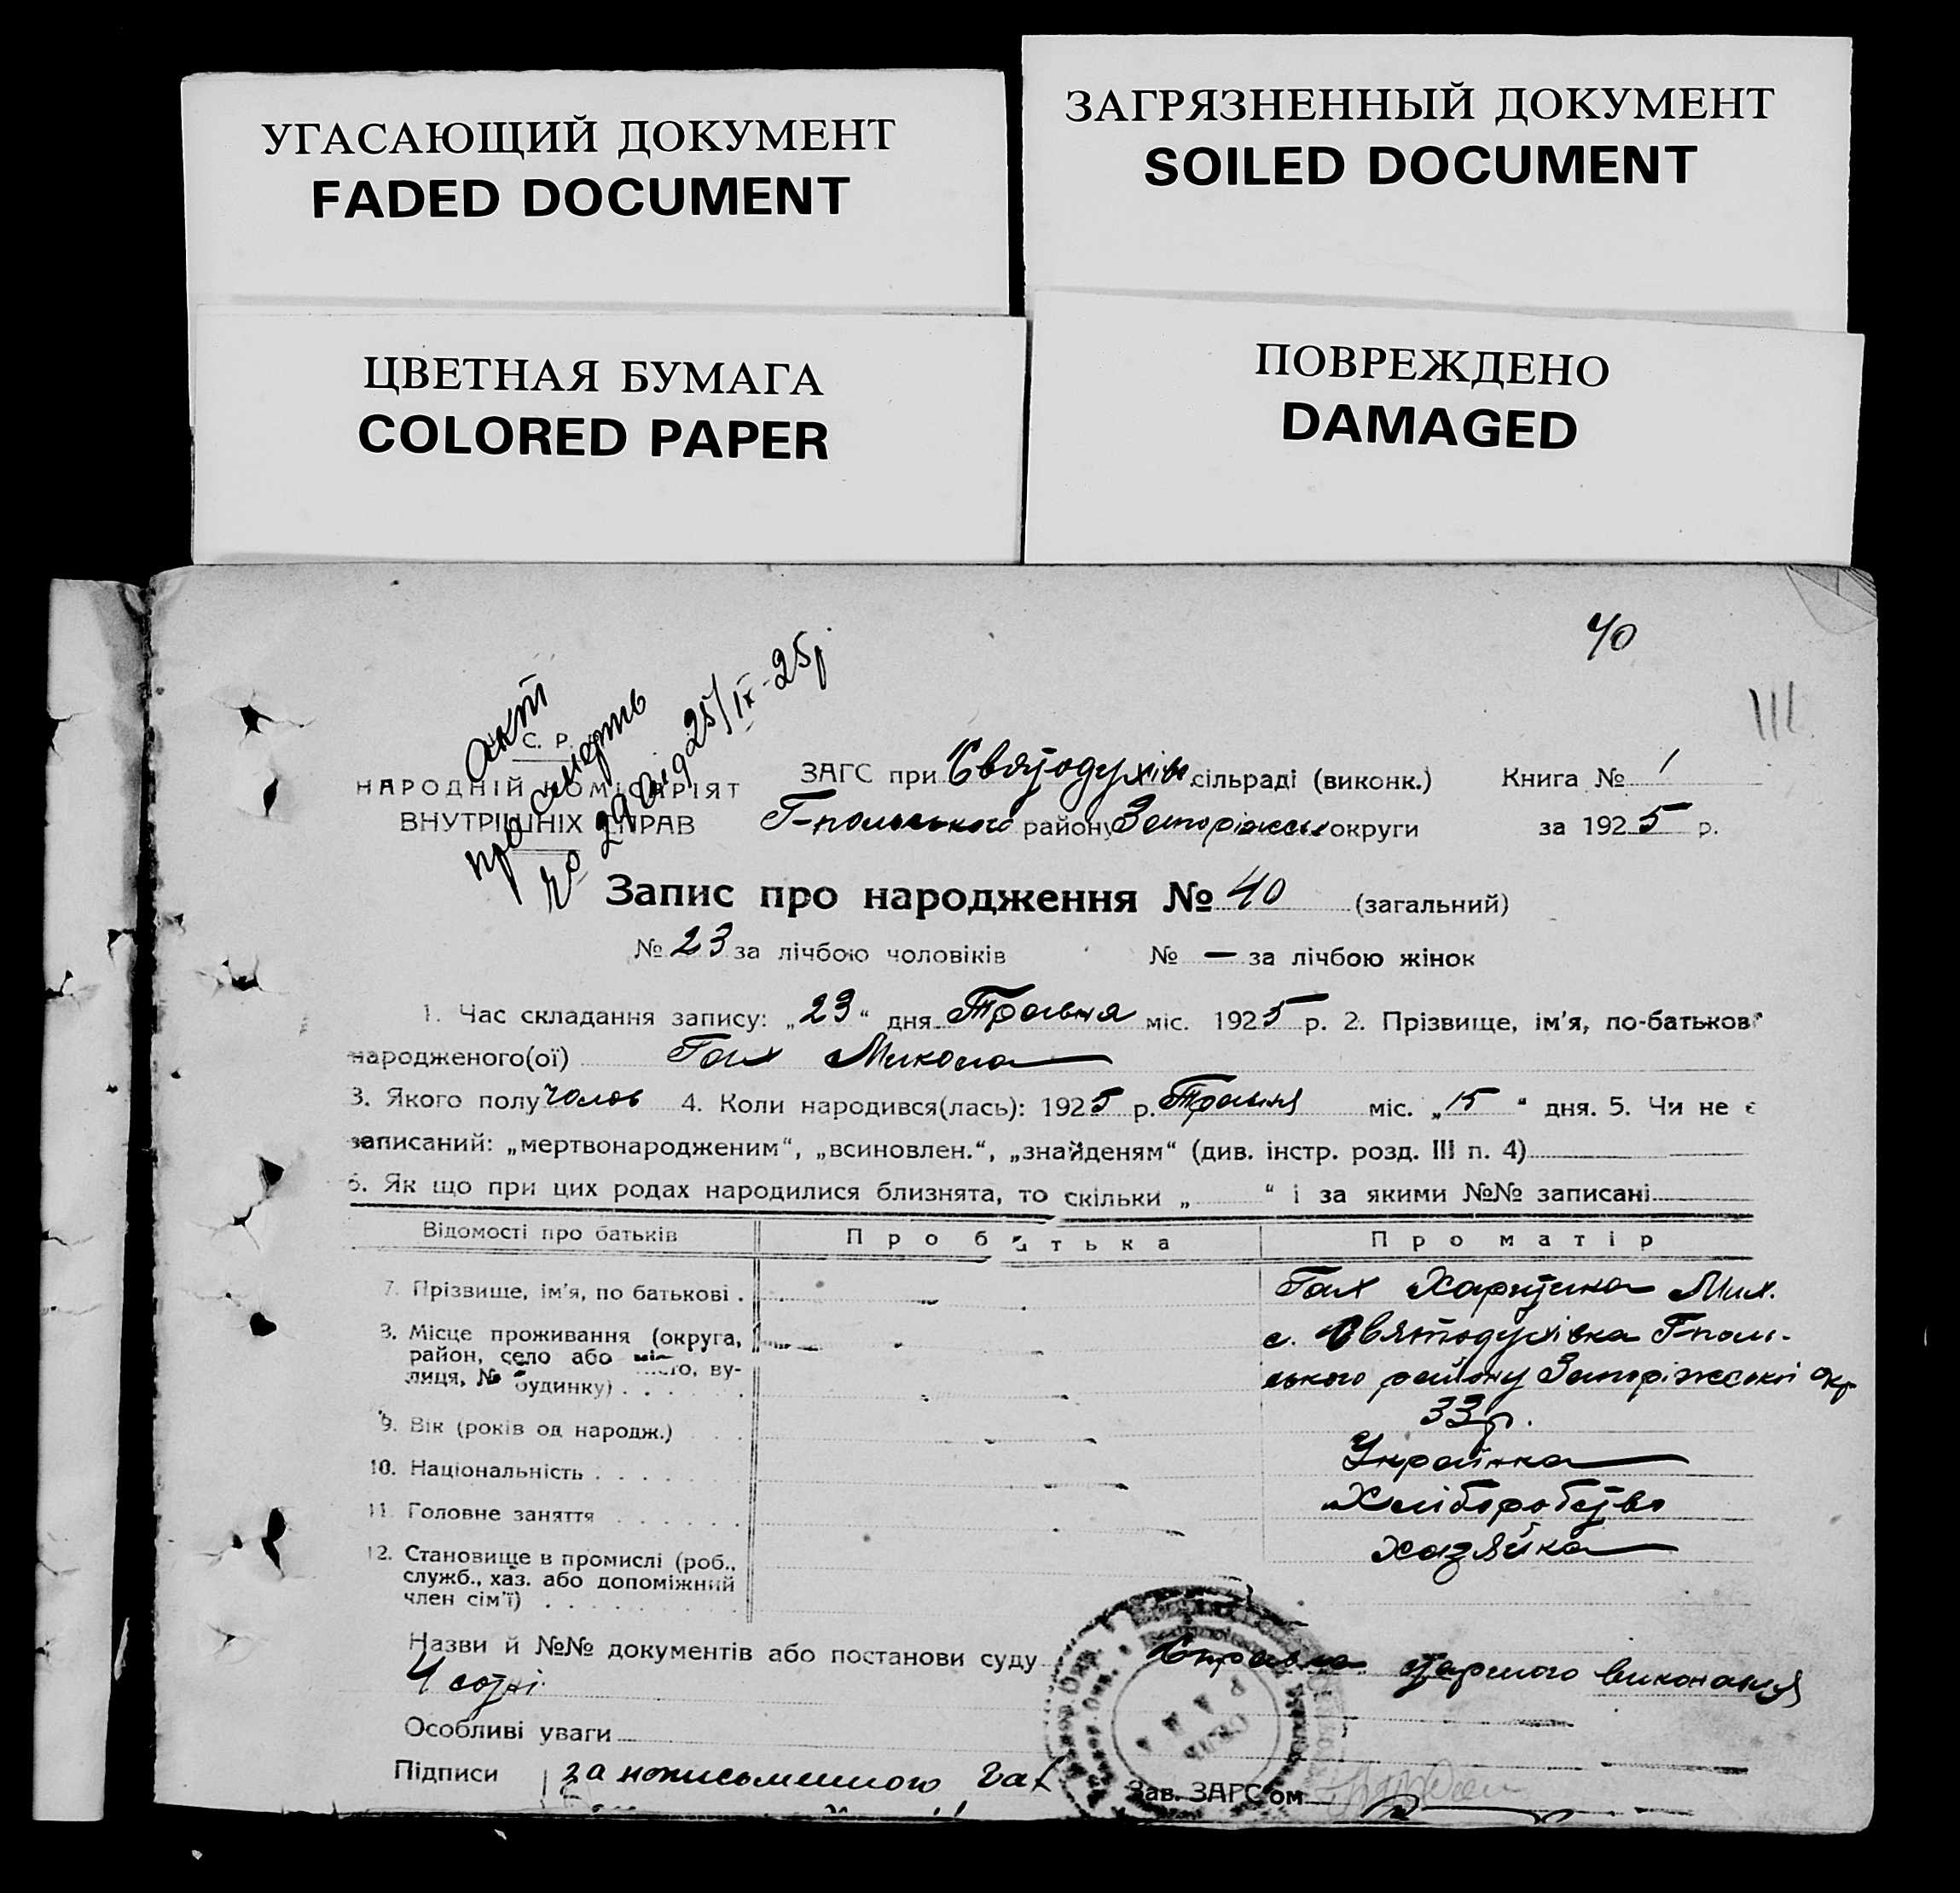 УГАСАЮЩИЙ ДОКУМЕНТ
FADED DOCUMENT
ЗАГРЯЗНЕННЫЙ ДОКУМЕНТ
SOILED DOCUMENT
ЦВЕТНАЯ БУМАГА
COLORED PAPER
ПОВРЕЖДЕНО
DAMAGED
40
III
акт
про смерть
25/IX-25р
С. Р.
НАРОДНІЙ КОМІСАРІЯТ
ВНУТРІШНІХ СПРАВ
ЗАГС при Святодухів. сільраді (виконк.) Книга № 1
Г-польського району Запоріжськ округи за 1925 р.
Запис про народження № 40 (загальний)
№ 23 за лічбою чоловіків № — за лічбою жінок
1. Час складання запису: „23“ дня Травня міс. 1925 р. 2. Прізвище, ім'я, по-батькові
народженого(ої) Гах Микола
3. Якого полу чолов 4. Коли народився(лась): 1925 р. Травня міс. „15“ дня. 5. Чи не є
записаний: „мертвонародженим“, „всиновлен.“, „знайденям“ (див. інстр. розд. III п. 4)
6. Як що при цих родах народилися близнята, то скільки „ “ і за якими №№ записані
Відомості про батьків Про батька Про матір
7. Прізвище, ім'я, по батькові . — Гах Харитина Мих.
8. Місце проживання (округа, с. Святодухівка Г-поль-
район, село або місто, ву- ського району Запоріжської Окр
лиця, № будинку) .
9. Вік (років од народж.) 33 р.
10. Національність . Українка
11. Головне заняття . Хліборобство
12. Становище в промислі (роб., хазяйка
служб., хаз. або допоміжний
член сім'ї) .
Назви й №№ документів або постанови суду Справка старшого виконавця
4 сотні
Особливі уваги
Підписи за неписьменного Гах Зав. ЗАГС'ом